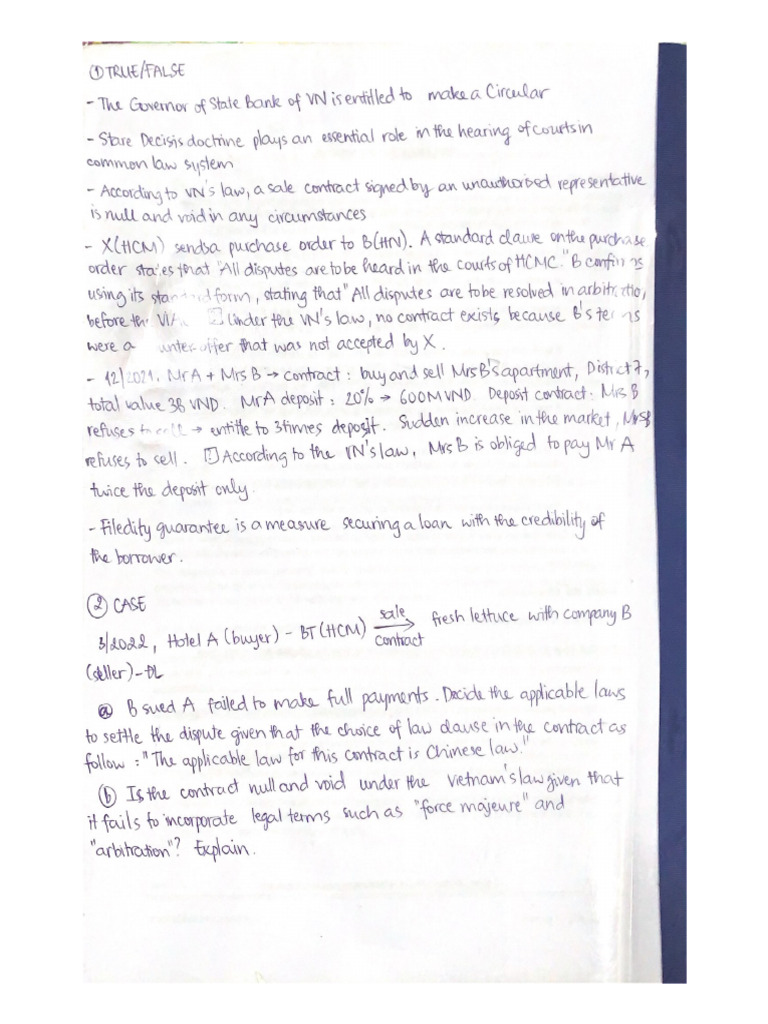 ① TRUE/FALSE
- The Governor of State Bank of VN is entitled to make a Circular
- Stare Decisis doctrine plays an essential role in the hearing of courts in
common law system
- According to VN's law, a sale contract signed by an unauthorised representative
is null and void in any circumstances
- X(HCM) sends a purchase order to B(HN). A standard clause on the purchase
order states that "All disputes are to be heard in the courts of HCMC." B confirms
using its standard form, stating that "All disputes are to be resolved in arbitratio,
before the Under the VN's law, no contract exists, because B's terms
were a unter offer that was not accepted by X.
- 12/2021, Mr A + Mrs B → contract : buy and sell Mrs B's apartment, District 7,
total value 3B VND. Mr A deposit : 20% → 600M VND. Deposit contract : Mrs B
refuses to sell → entitle to 3 times deposit. Sudden increase in the market, Mrs B
refuses to sell. According to the VN's law, Mrs B is obliged to pay Mr A
twice the deposit only.
- Filedity guarantee is a measure securing a loan with the credibility of
the borrower.
② CASE
3/2022, Hotel A (buyer) - BT (HCM) sale contract → fresh lettuce with company B
(seller) - DL
ⓐ B sued A failed to make full payments. Decide the applicable laws
to settle the dispute given that the choice of law clause in the contract as
follow : "The applicable law for this contract is Chinese law."
ⓑ Is the contract null and void under the Vietnam's law given that
it fails to incorporate legal terms such as "force majeure" and
"arbitration"? Explain.